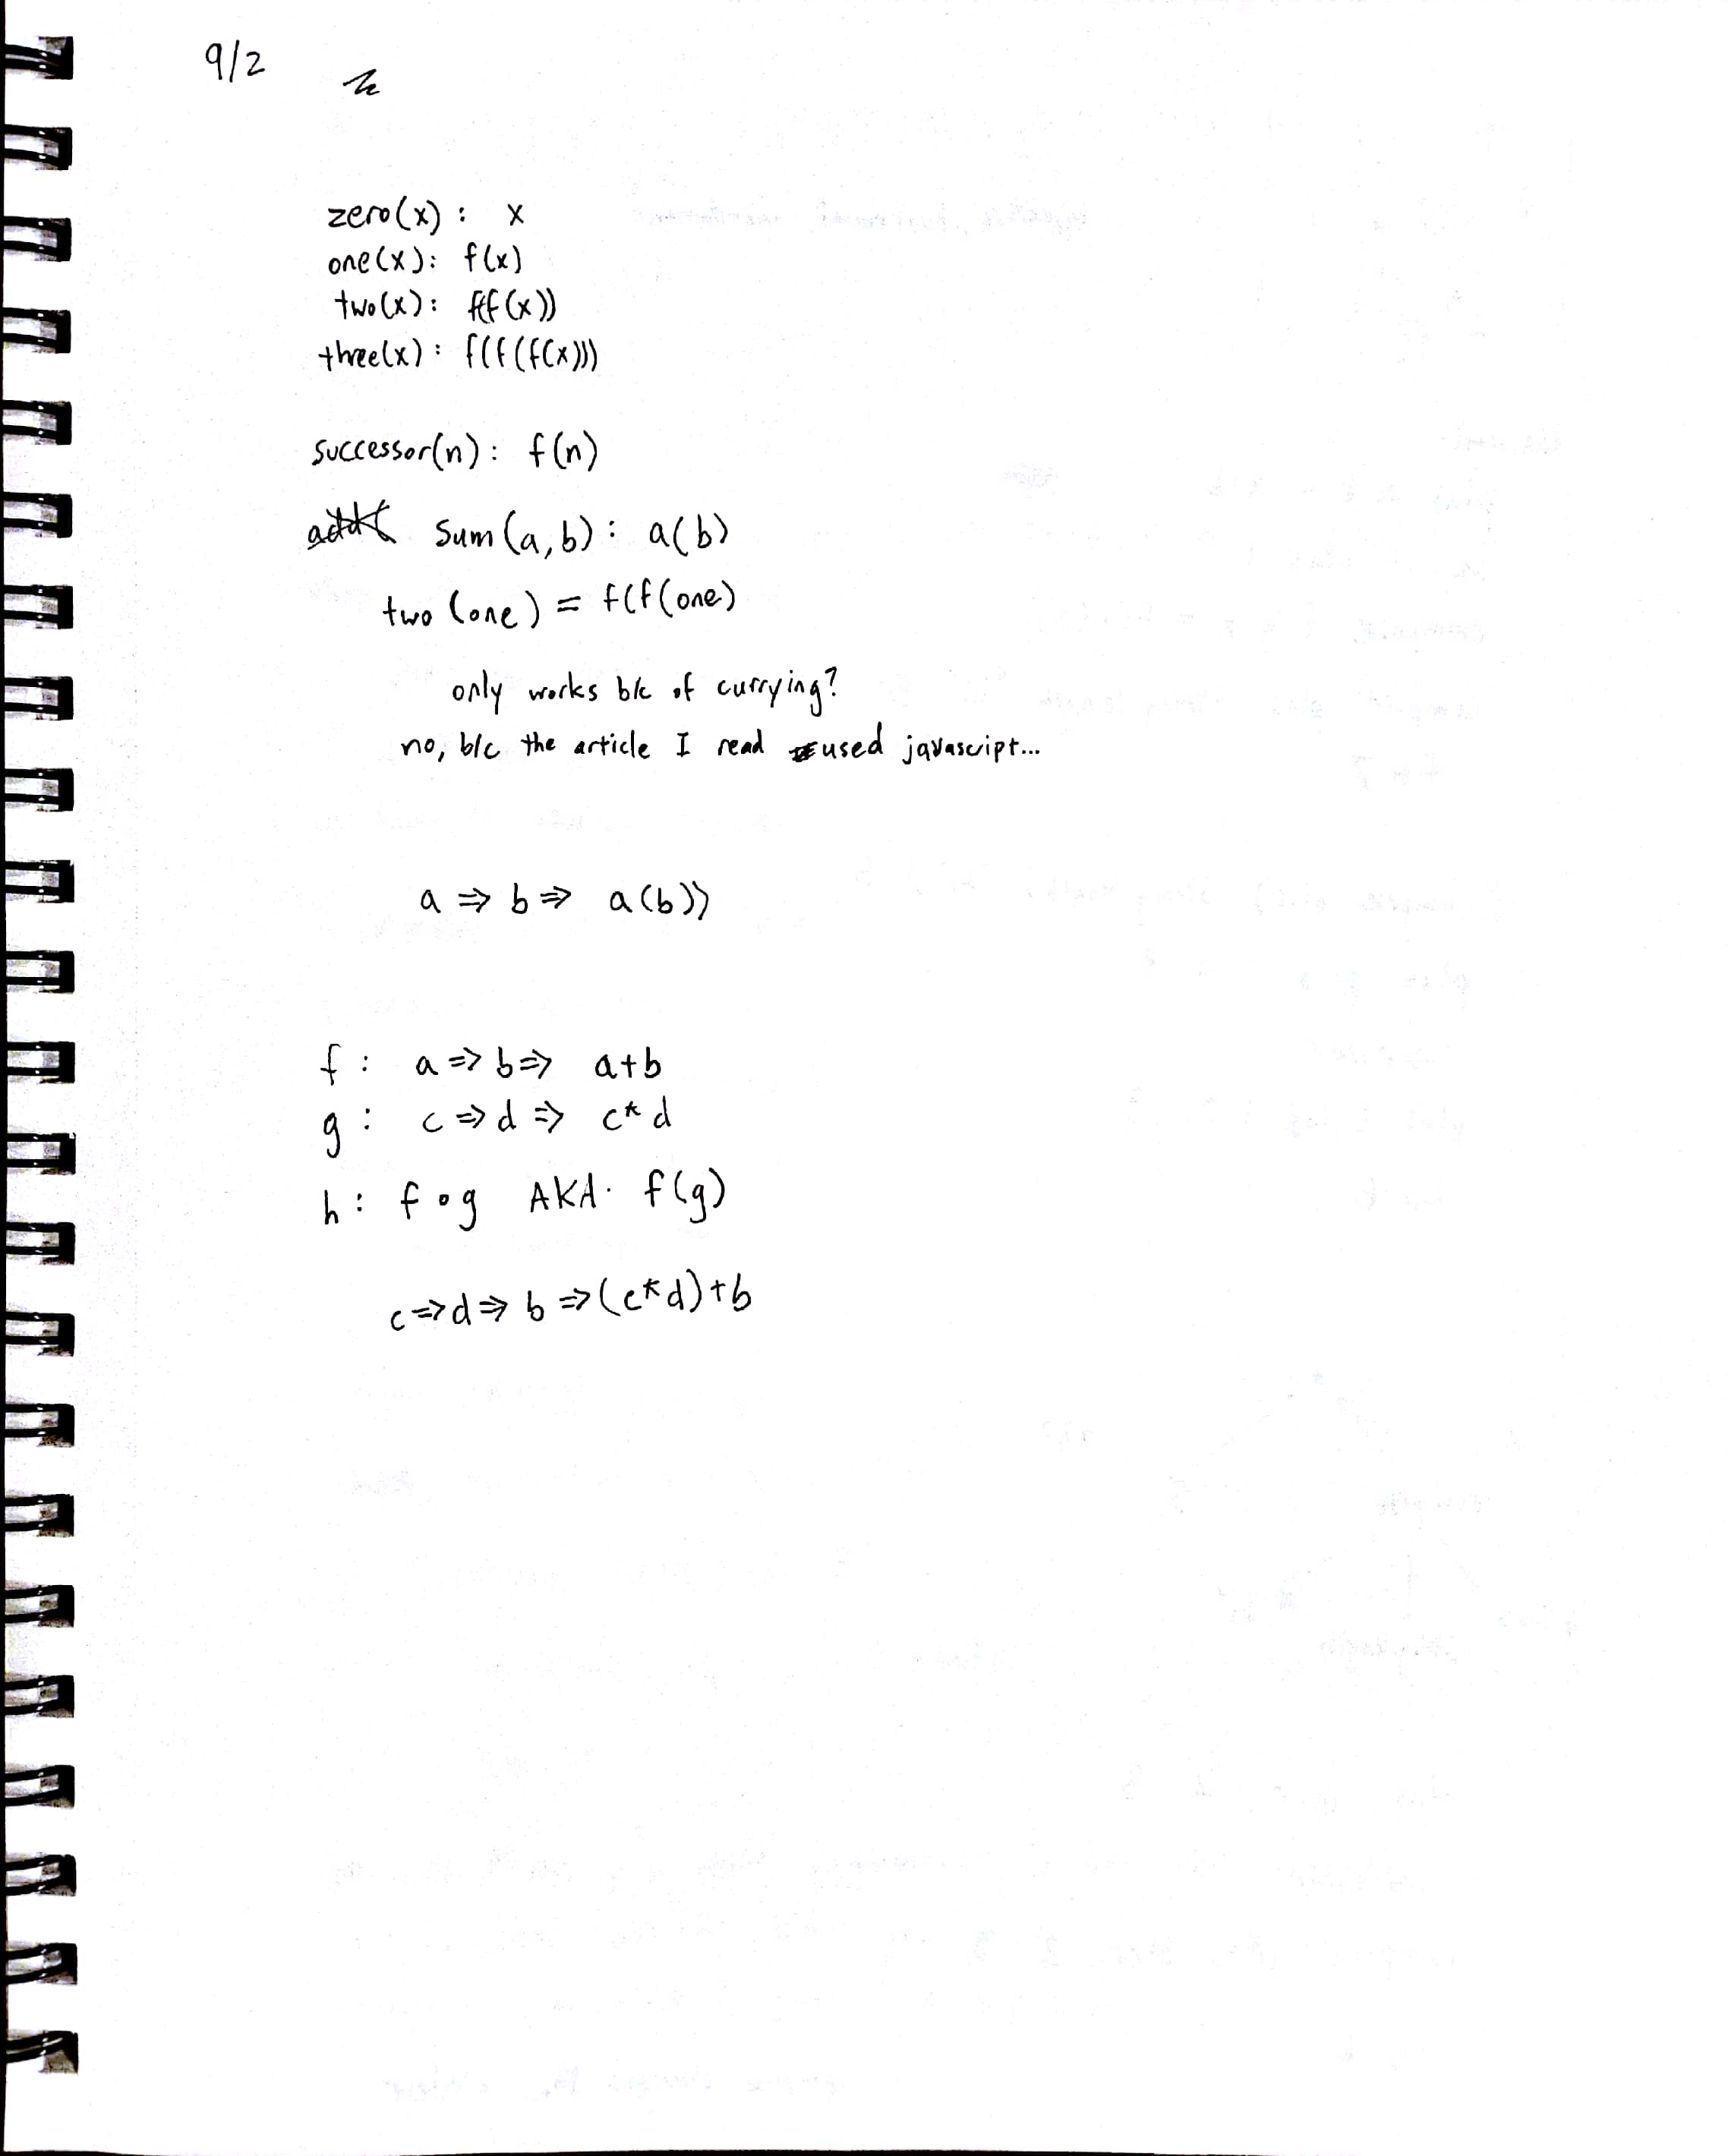 9/2
zero(x): x
one(x): f(x)
two(x): f(f(x))
three(x): f(f(f(x)))
successor(n): f(n)
sum(a,b): a(b)
two(one) = f(f(one)
only works b/c of currying?
no, b/c the article I read used javascript...
a => b => a(b))
f: a => b => a+b
g: c => d => c*d
h: f∘g AKA. f(g)
c => d => b => (c*d)+b